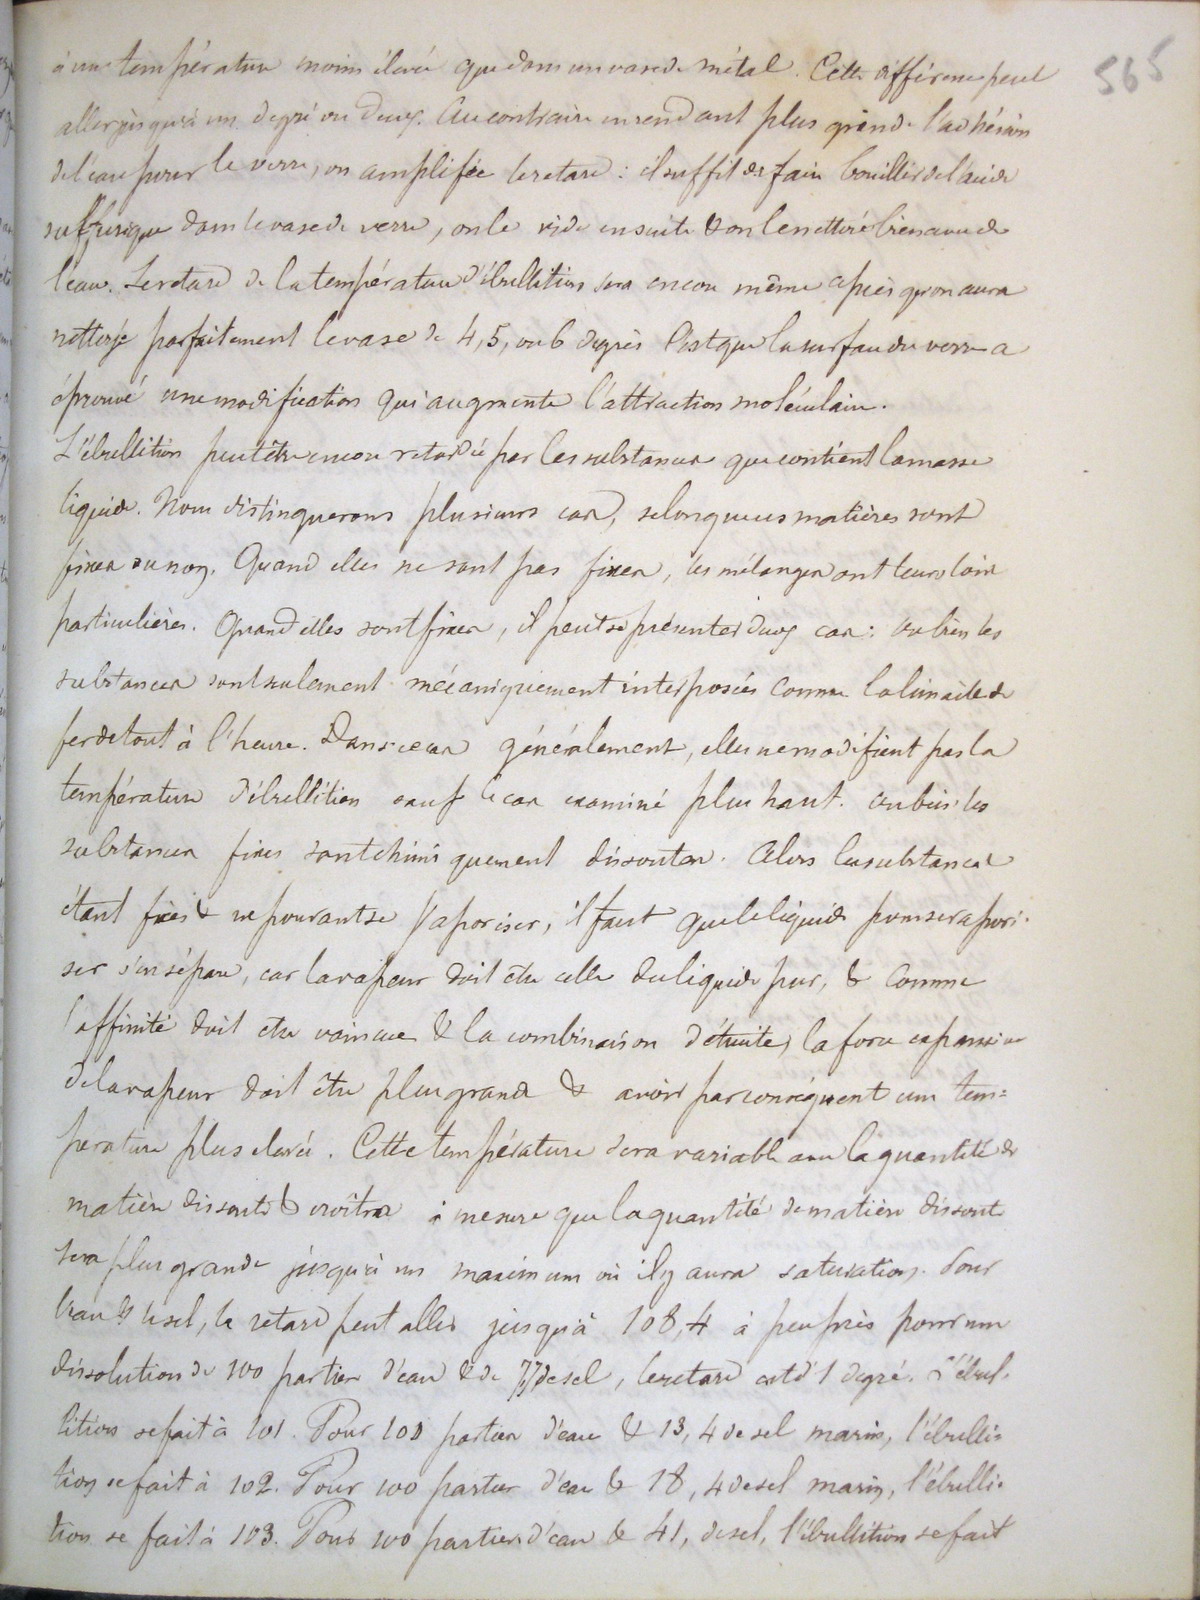 565
à une température moins élevée que dans un vase de métal. Cette différence peut
aller jusqu'à un degré ou deux. Au contraire en rendant plus grande l'adhésion
de l'eau pour le verre, on amplifie le retard : il suffit de faire bouillir de l'acide
sulfurique dans le vase de verre, on le vide ensuite & on le nettoie bien avec de
l'eau. Le retard de la température d'ébullition sera encore même après qu'on aura
nettoyé parfaitement le vase de 4, 5, ou 6 degrés C'est que la surface du verre a
éprouvé une modification qui augmente l'attraction moléculaire.
L'ébullition peut être encore retardée par les substances que contient la masse
liquide. Nous distinguerons plusieurs cas, selon que ces matières sont
fixes ou non. Quand elles ne sont pas fixes, les mélanges ont leurs lois
particulières. Quand elles sont fixes, il peut se présenter deux cas : ou bien les
substances sont seulement mécaniquement interposées comme la limaille de
fer de tout à l'heure. Dans ce cas généralement, elles ne modifient pas la
température d'ébullition sauf le cas examiné plus haut. ou bien les
substances fixes sont chimiquement dissoutes. Alors la substance
étant fixes & ne pouvant se vaporiser, il faut que le liquide pour se vapori-
ser s'en sépare, car la vapeur doit être celle du liquide pur, & comme
l'affinité doit être vaincue & la combinaison détruite, la force expansive
de la vapeur doit être plus grande & avoir par conséquent une tem=
pérature plus élevée. Cette température sera variable avec la quantité de
matière dissoute & croîtra à mesure que la quantité de matière dissoute
sera plus grande jusqu'à un maximum où il y aura saturation. Pour
l'eau & le sel, le retard peut aller jusqu'à 108,4 à peu près pour une
dissolution de 100 parties d'eau & de 7,7 de sel, le retard est d'1 degré. L'ébul-
lition se fait à 101. Pour 100 parties d'eau & 13,4 de sel marin, l'ébulli-
tion se fait à 102. Pour 100 parties d'eau & 18,4 de sel marin, l'ébulli-
tion se fait à 103. Pour 100 parties d'eau & 41, de sel, l'ébullition se fait